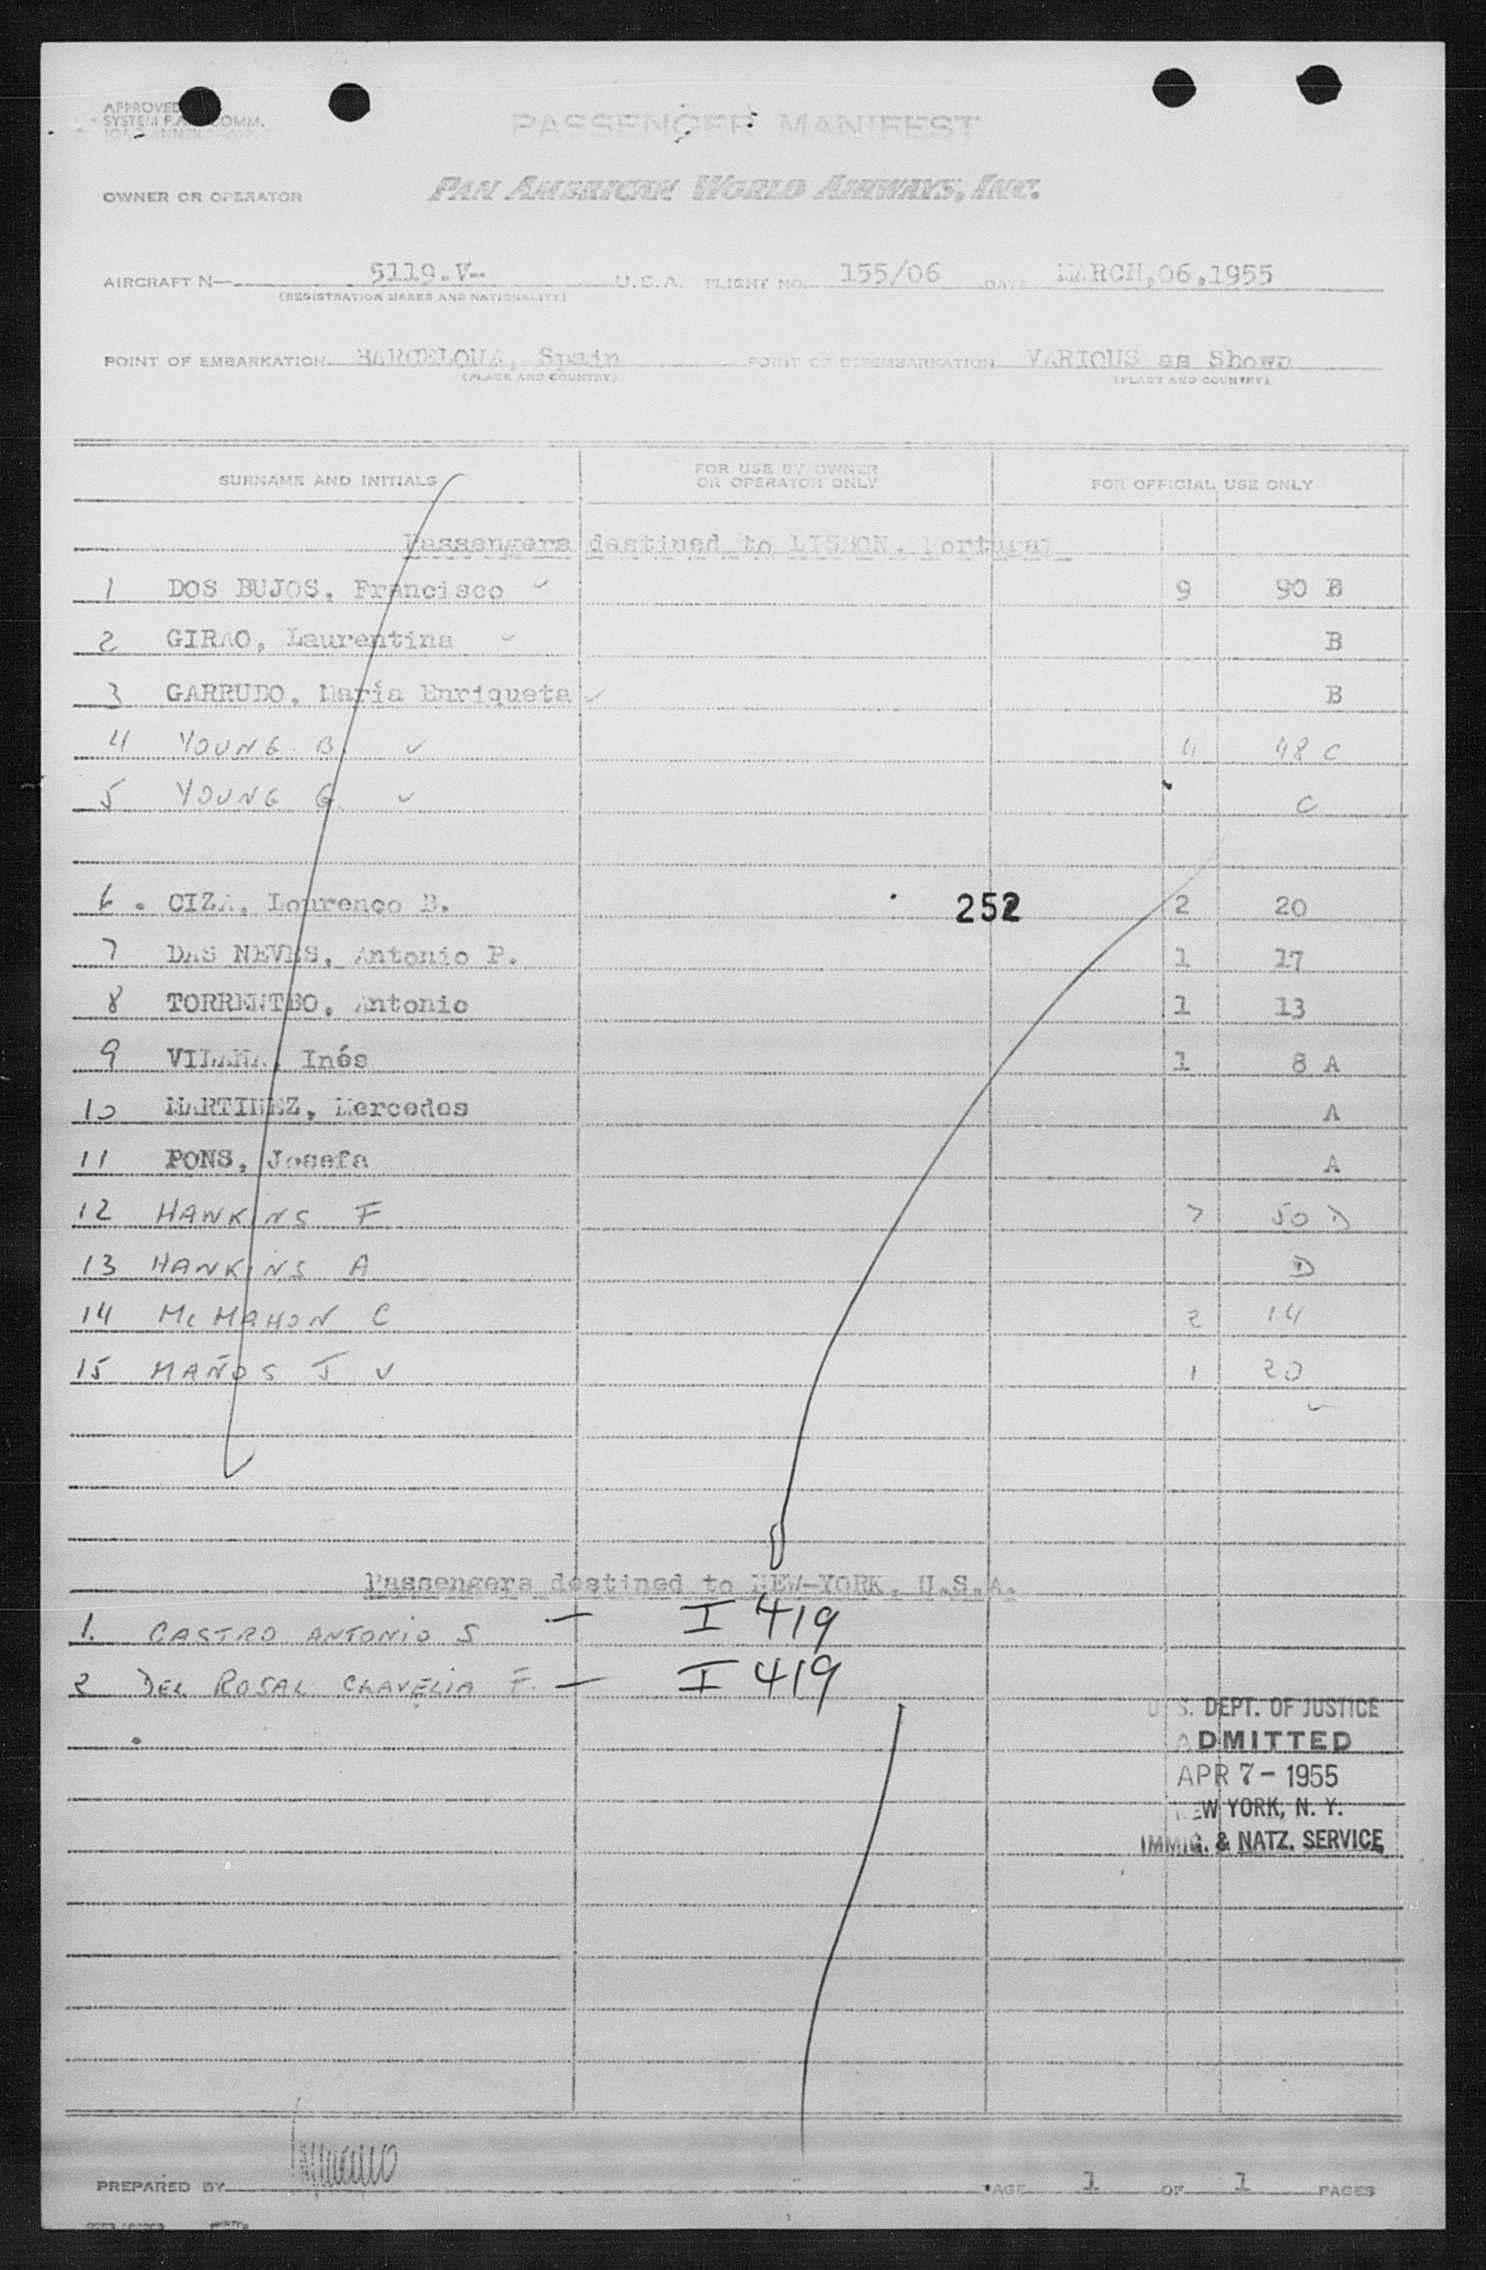 PASSENGER MANIFEST
OWNER OR OPERATOR PAN AMERICAN WORLD AIRWAYS, INC.
AIRCRAFT N— 5119.V-- U.S.A. FLIGHT NO. 155/06 DATE MARCH,06,1955
(REGISTRATION MARKS AND NATIONALITY)
POINT OF EMBARKATION BARCELONA, Spain POINT OF DISEMBARKATION VARIOUS as Shown
(PLACE AND COUNTRY) (PLACE AND COUNTRY)
SURNAME AND INITIALS FOR USE BY OWNER OR OPERATOR ONLY FOR OFFICIAL USE ONLY
Passengers destined to LISBON, Portugal
1 DOS BUJOS, Francisco 9 90 B
2 GIRAO, Laurentina B
3 GARRUDO, María Enriqueta B
4 YOUNG B. 4 48 C
5 YOUNG G. C
6 . CIZA, Lourenço B. 252 2 20
7 DAS NEVES, Antonio P. 1 17
8 TORRENTBO, Antonio 1 13
9 VILANA, Inés 1 8 A
10 MARTINEZ, Mercedes A
11 PONS, Josefa A
12 HAWKINS F 7 50 D
13 HAWKINS A D
14 Mc MAHON C 2 14
15 MAÑOS J 1 20
Passengers destined to NEW-YORK, U.S.A.
1. CASTRO ANTONIO S — I 419
2 DEL ROSAL CLAVELIA F. — I 419
U. S. DEPT. OF JUSTICE
ADMITTED
APR 7 - 1955
NEW YORK, N. Y.
IMMIG. & NATZ. SERVICE
PREPARED BY PAGE 1 OF 1 PAGES